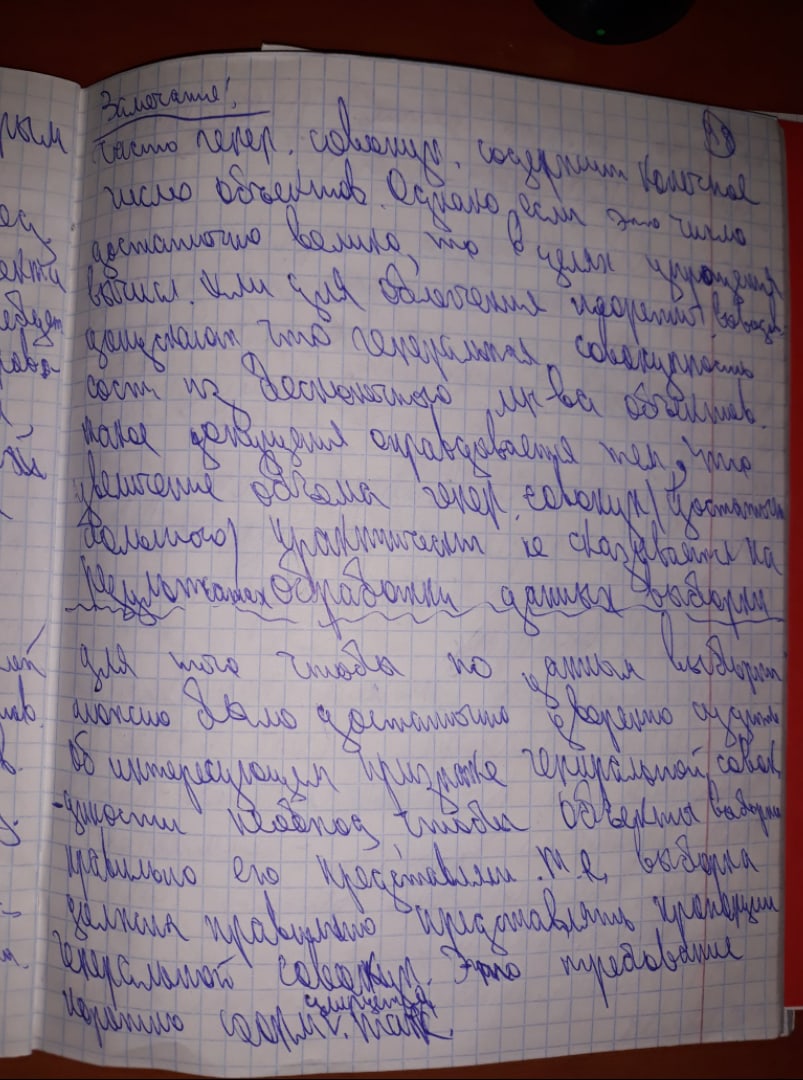 Замечание!
часто генер. совокуп. содержит конечное
число объектов. Однако если это число
достаточно велико, то в целях упрощения
вычисл. или для облегчения теоретич. выводов
допускают что генеральная совокупность
сост. из бесконечного мн-ва объектов.
такое допущения оправдовается тем, что
увеличение объёма генер. совокуп (достаточно
большого) практически не сказывается на
результатах обработки данных выборки
для того чтобы по данным выборки
можно было достаточно уверенно судить
об интересующем признаке генеральной совок
-упности необход, чтобы объекты выборки
правильно его представляли. т.е. выборка
должна правильно представлять пропорции
генеральной совокуп. Это требование
коротко форм. так.